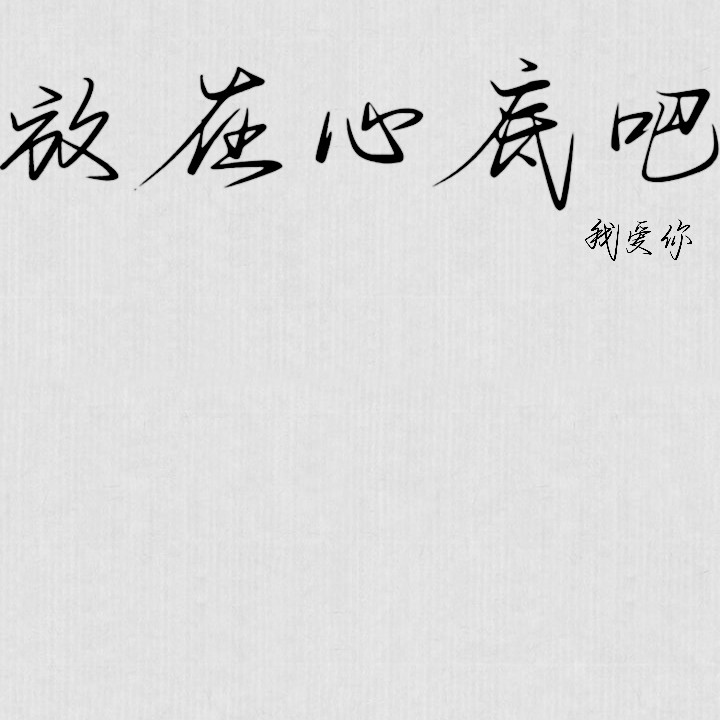 放在心底吧
我爱你